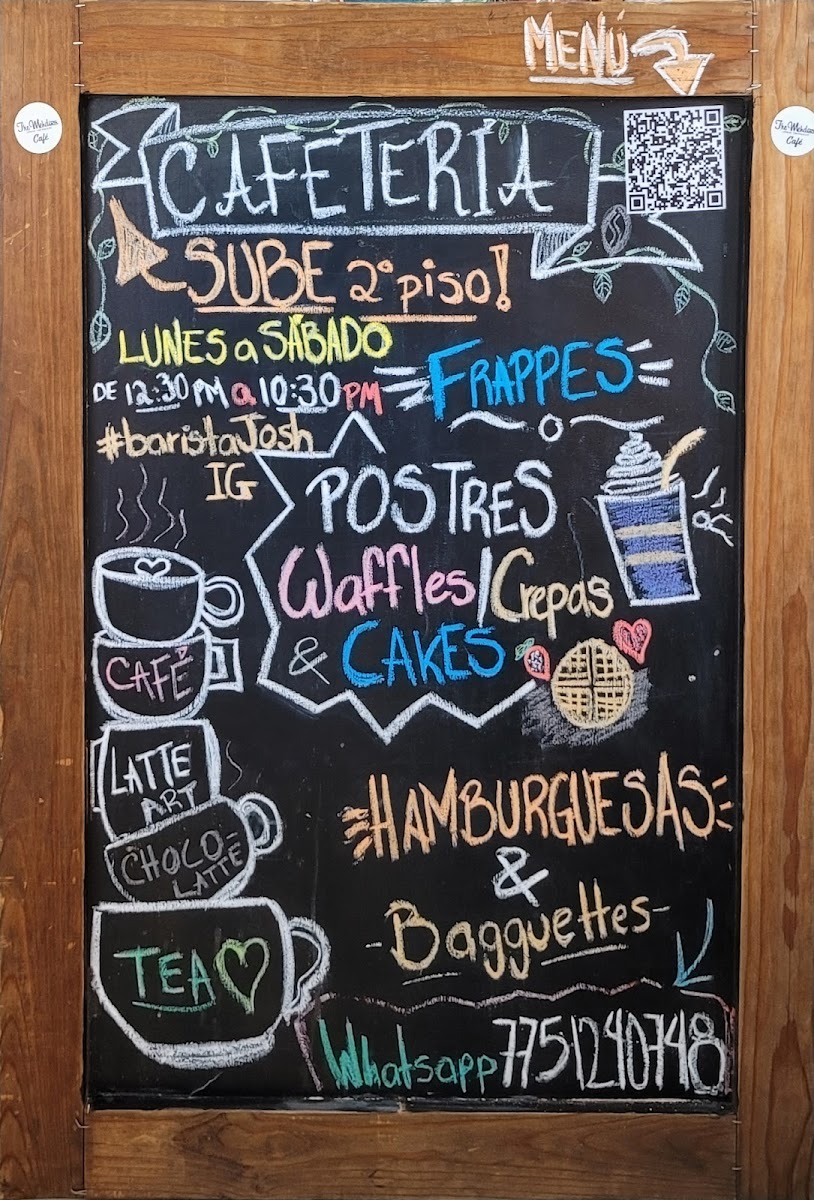 MENÚ
CAFETERÍA
SUBE 2° piso!
LUNES a SÁBADO
DE 12:30 PM a 10:30 PM
#baristaJosh
IG
FRAPPES
POSTRES
Waffles/Crepas
& CAKES
CAFÉ
LATTE
ART
CHOCO-
LATTE
TEA
HAMBURGUESAS
&
-Bagguettes-
Whatsapp 7751240748
Café
Café